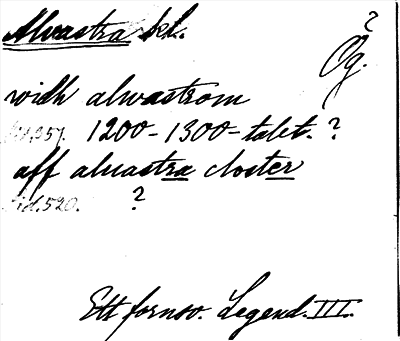 Alvastra skl. ?
Ög.
widh alwastrom
sid. 351. 1200-1300-talet. ?
aff aluastra closter
sid. 520. ?
Ett fornsv. Legend. III.